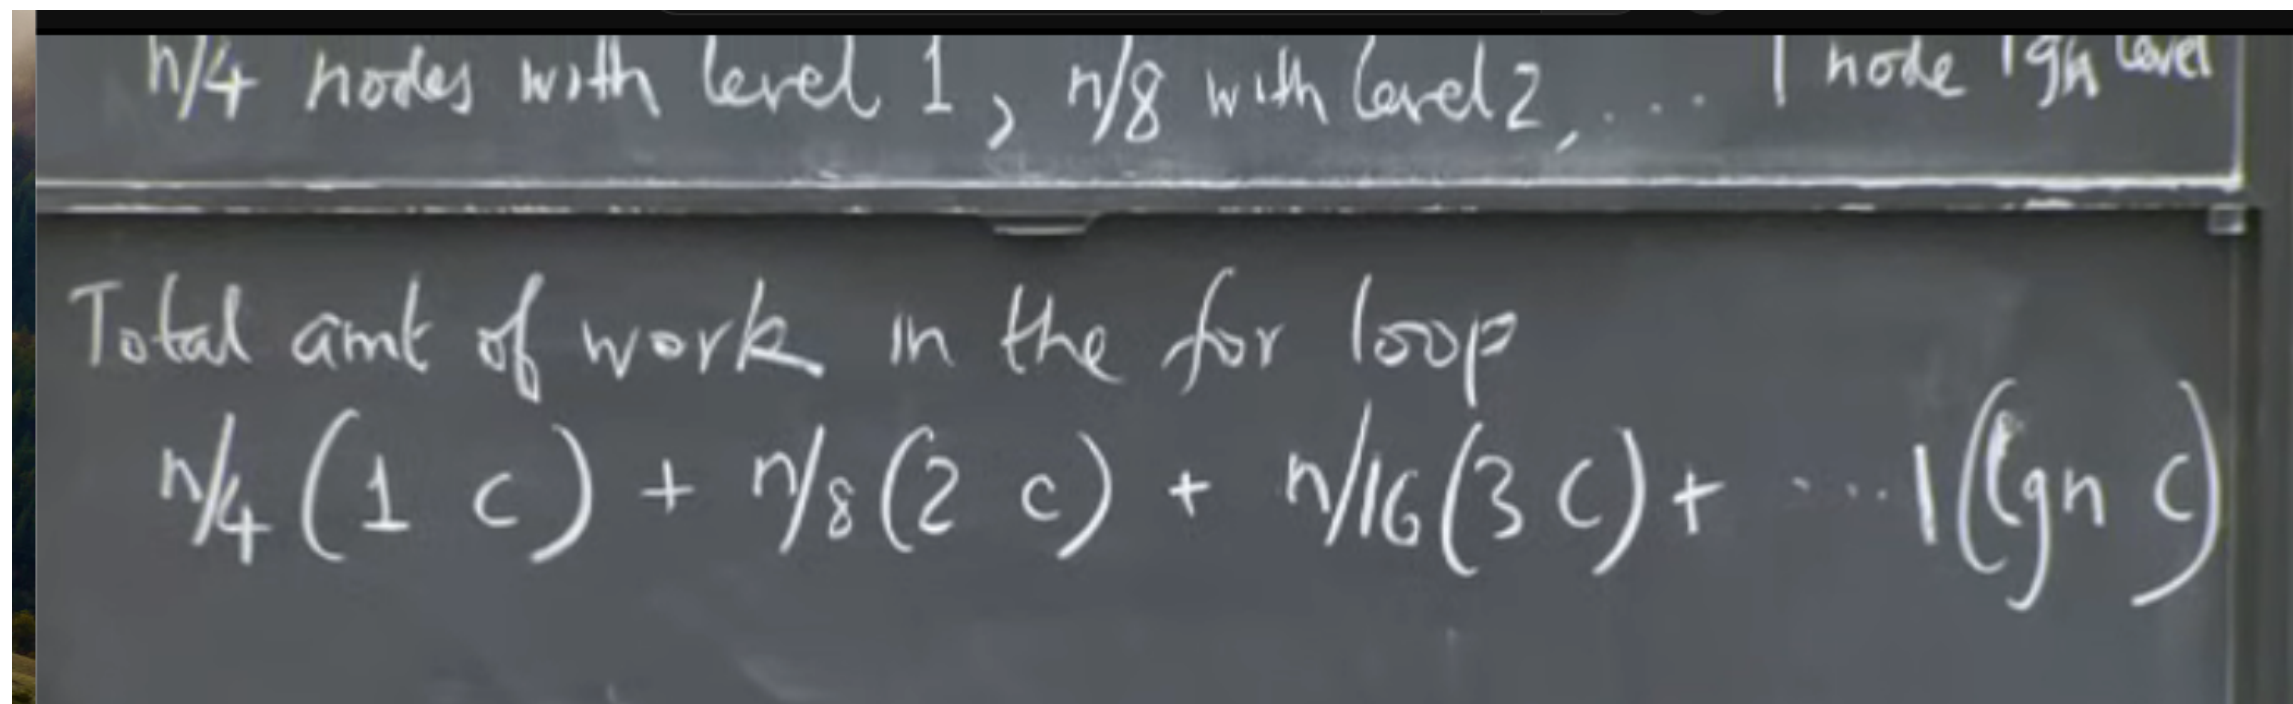 n/4 nodes with level 1, n/8 with level 2, ... 1 node lgn level
Total amt of work in the for loop
n/4 (1 c) + n/8 (2 c) + n/16 (3 c) + ... 1 (lgn c)